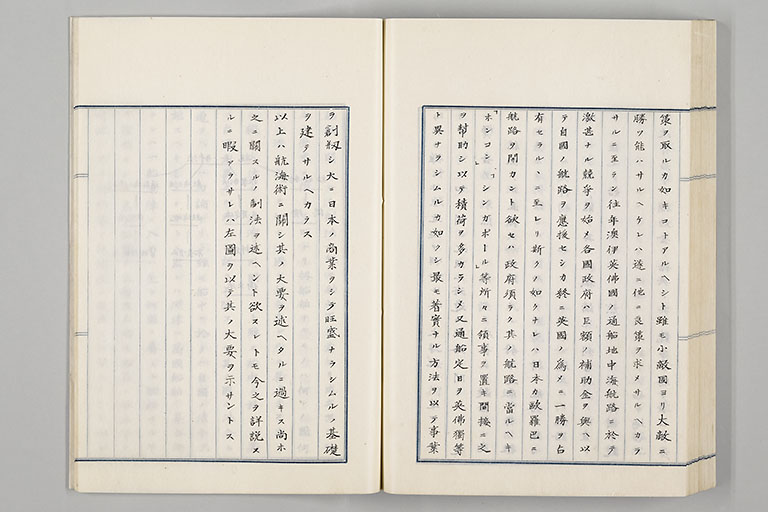 策ヲ取ルカ如キコトアルヘシト雖モ小敵國ヨリ大敵ニ
勝ツ能ハサルヘケレハ遂ニ他ニ良策ヲ求メサルヘカラ
サルニ至ラン往年澳伊英佛國ノ通船地中海航路ニ於テ
激甚ナル競爭ヲ始メ各國政府ハ巨額ノ補助金ヲ與ヘ以
テ自國ノ航路ヲ應援セシカ終ニ英國ノ爲メニ一勝ヲ占
有セラルヽニ至レリ斯クノ如クナレハ日本カ歐羅巴ニ
航路ヲ開カント欲セハ政府須ラク其ノ航路ニ當ルヘキ
「ホンコン」「シンガポール」等所々ニ領事ヲ置キ間接ニ之
ヲ幇助シ以テ積荷ヲ多カラシメ又通船定日ヲ英佛獨等
ト異ナラシムルカ如ツシ最モ著實ナル方法ヲ以テ事業
ヲ創剏シ大ニ日本ノ商業ヲシテ旺盛ナラシムルノ基礎
ヲ建テサルヘカラス
以上ハ航海術ニ關シ其ノ大要ヲ述ヘタルニ過キス尚ホ
之ニ關スルノ制法ヲ述ヘント欲スレトモ今之ヲ詳説ス
ルニ暇アラサレハ左圖ヲ以テ其ノ大要ヲ示サントス